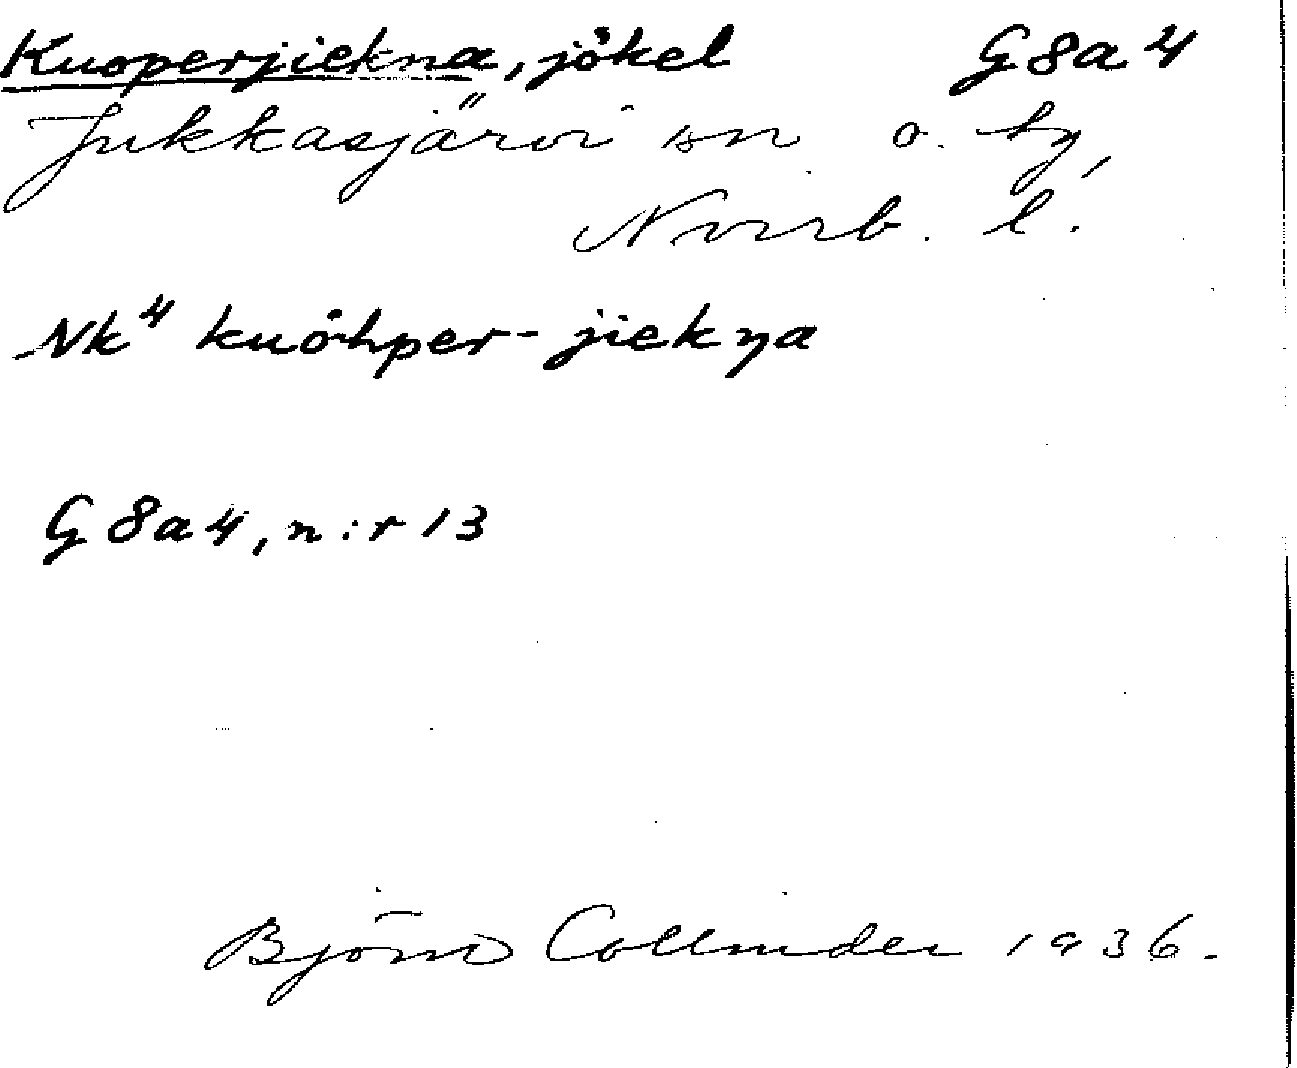 Kuoperjiekna, jökel G8a4
Jukkasjärvi sn o. tg,
Norrb. l.
Nk⁴ kuȯhper-jiekŋa
G8a4, n:r 13
Björn Collinder 1936.